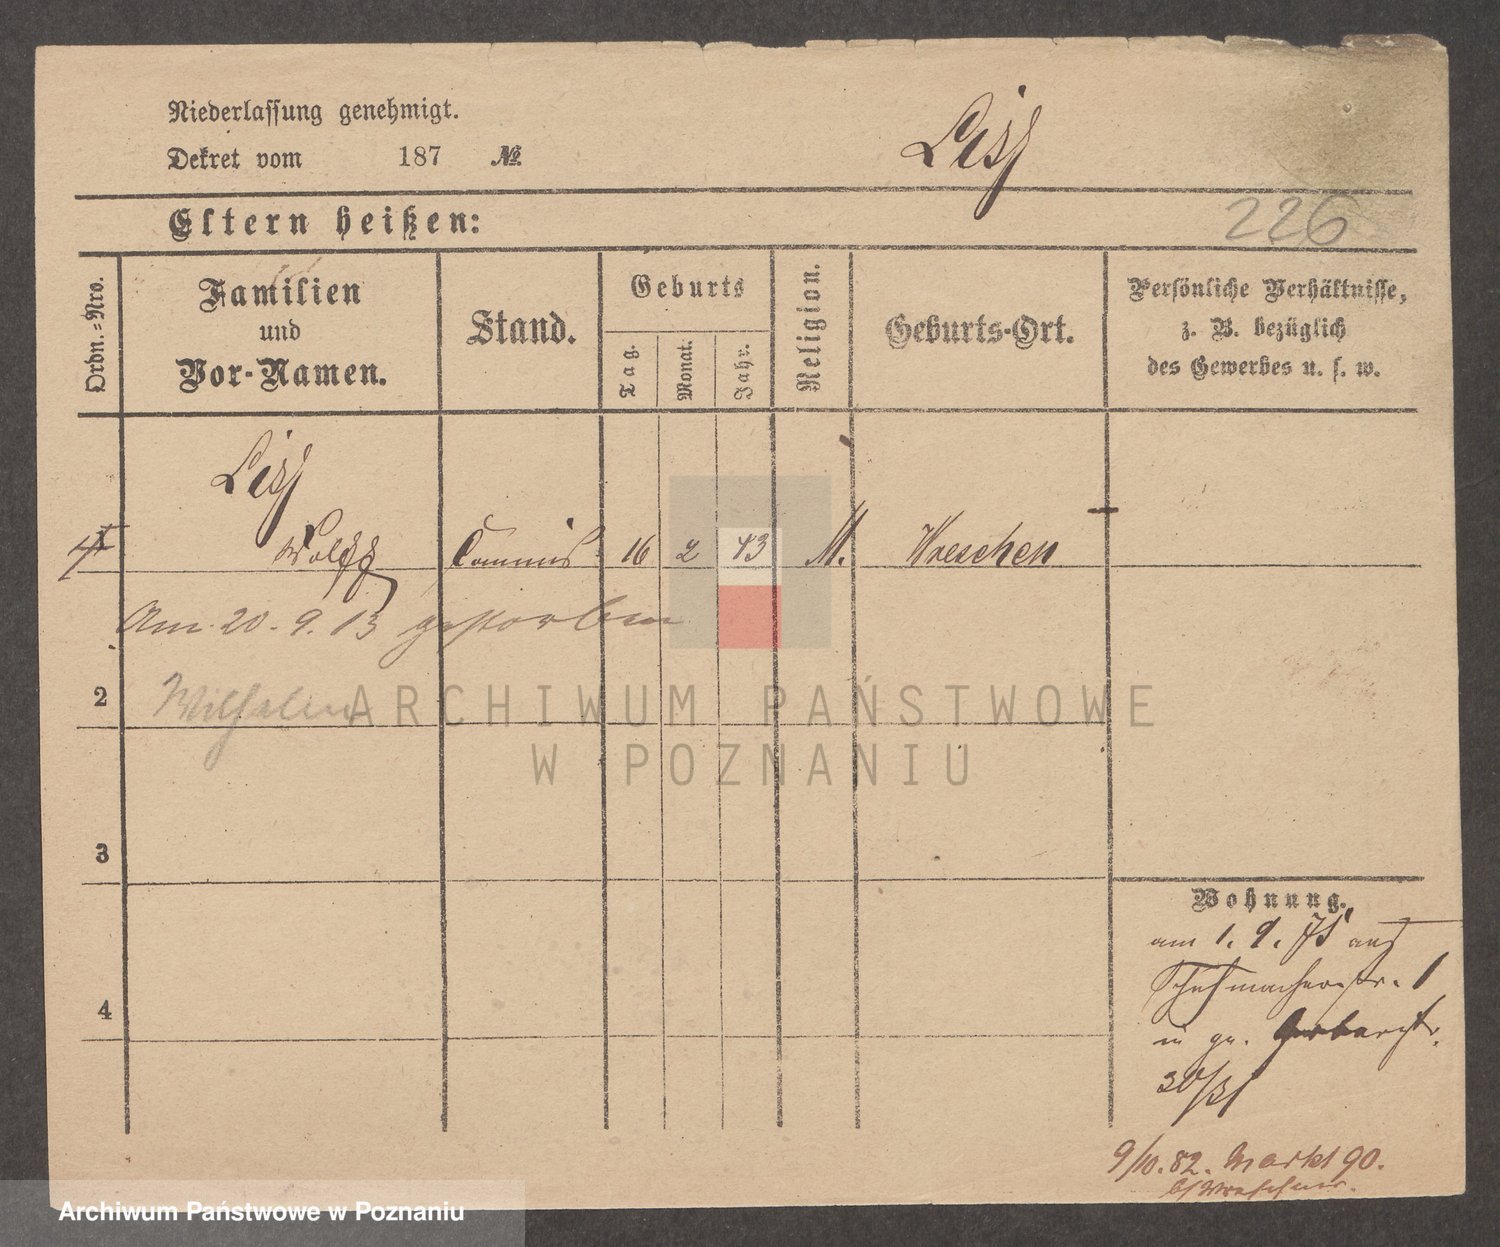 Niederlassung genehmigt.
Dekret vom 187 №
Liss
Eltern heißen:
226
Ordn.=Nro.
Familien
und
Vor-Namen.
Stand.
Geburts
Tag.
Monat.
Jahr.
Religion.
Geburts-Ort.
Persönliche Verhältnisse,
z. B. bezüglich
des Gewerbes u. s. w.
Liss
1 Wolff Commis 16 2 43 M. Wreschen
Am 20.9.13 gestorben
2 Wilhelm
3
4
Wohnung.
am 1. 9. 75 aus
Schuhmacherstr. 1
in gr. Gerberstr.
30/31
9/10. 82. Markt 90.
ARCHIWUM PAŃSTWOWE
W POZNANIU
Archiwum Państwowe w Poznaniu